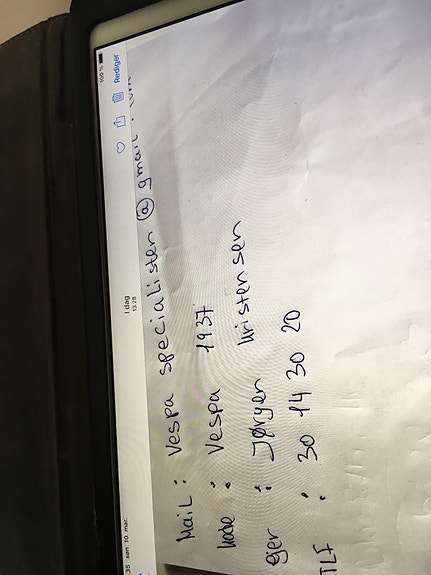 .35 søn. 10. mar. 100 %
I dag
13.28
Rediger
Mail : Vespa specialisten @ gmail . com
kode : Vespa 1937
ejer : Jørgen kristensen
TLF : 30 14 30 20